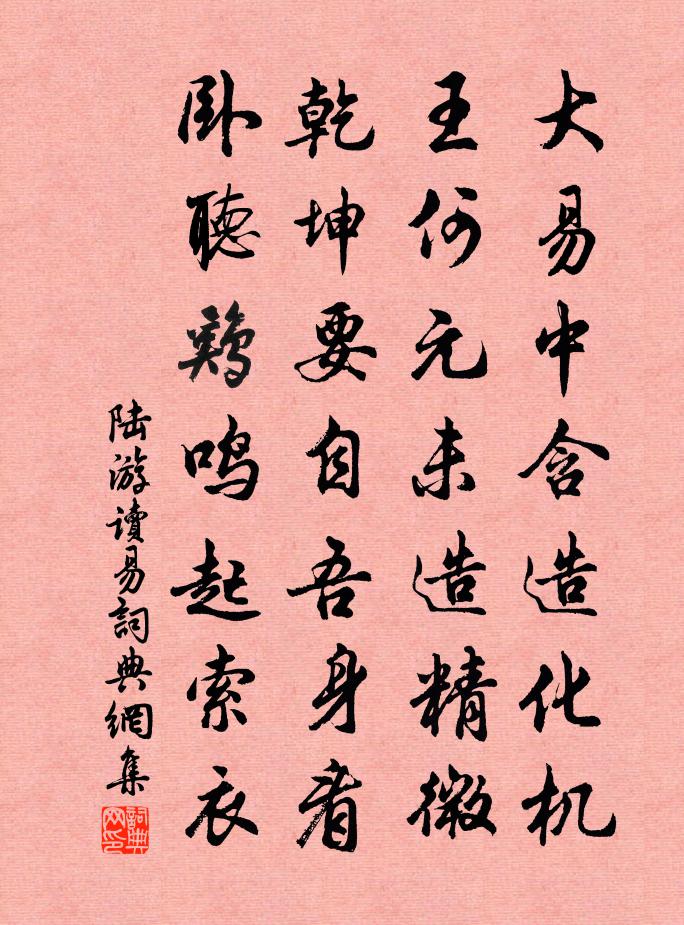 大易中含造化机
王何元未造精微
乾坤要自吾身看
卧聽鷄鸣起索衣
陆游讀易詞典網集
詞典网印